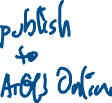 publish
to
ArcGIS Online